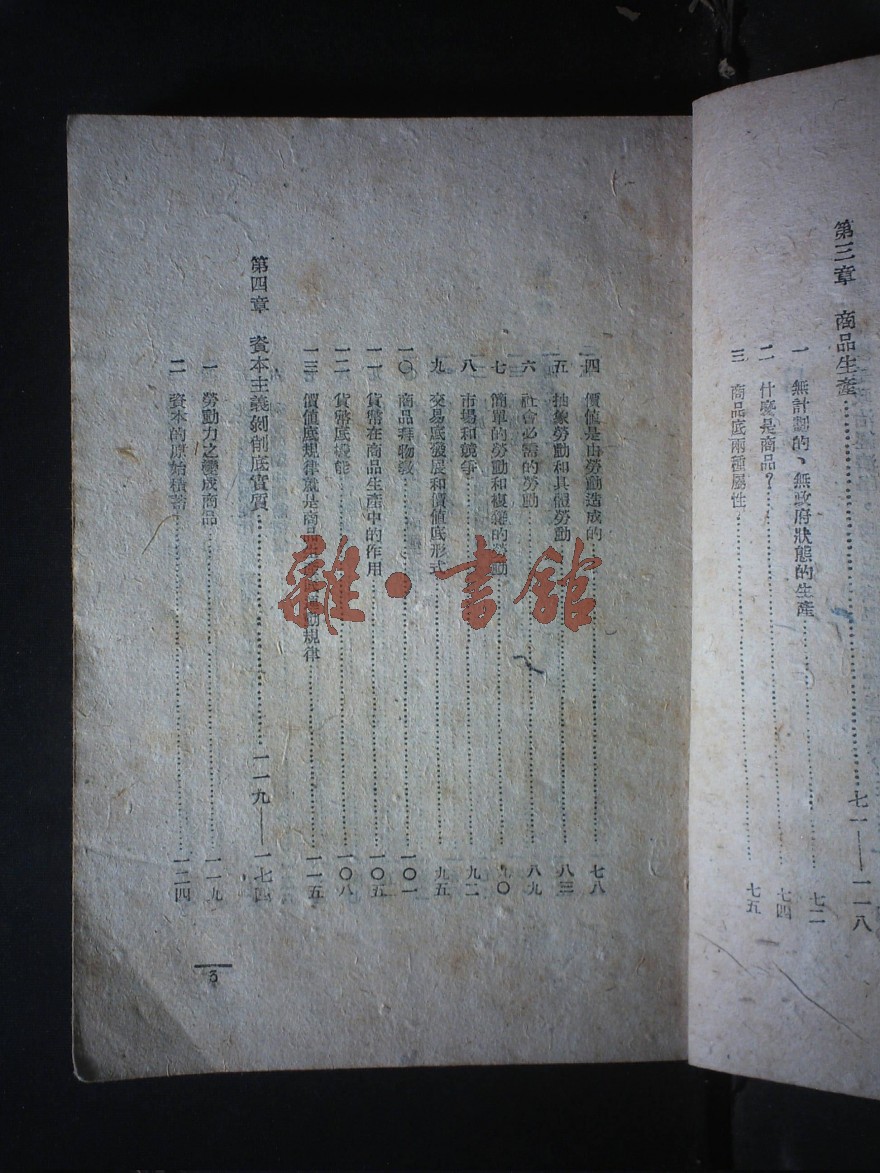 第三章 商品生產……七一——一一八
一 無計劃的、無政府狀態的生產……七二
二 什麽是商品？……七四
三 商品底兩種屬性……七五
四 價値是由勞動造成的……七八
五 抽象勞動和具體勞動……八三
六 社會必需的勞動……八九
七 簡單的勞動和複雜的勞動……九〇
八 市場和競爭……九二
九 交易底發展和價値底形式……九五
一〇 商品拜物敎……一〇一
一一 貨幣在商品生產中的作用……一〇五
一二 貨幣底機能……一〇八
一三 價値底規律就是商品 動規律……一一五
第四章 資本主義剝削底實質……一一九——一七四
一 勞動力之變成商品……一一九
二 資本的原始積蓄……一二四
3
雜·書館